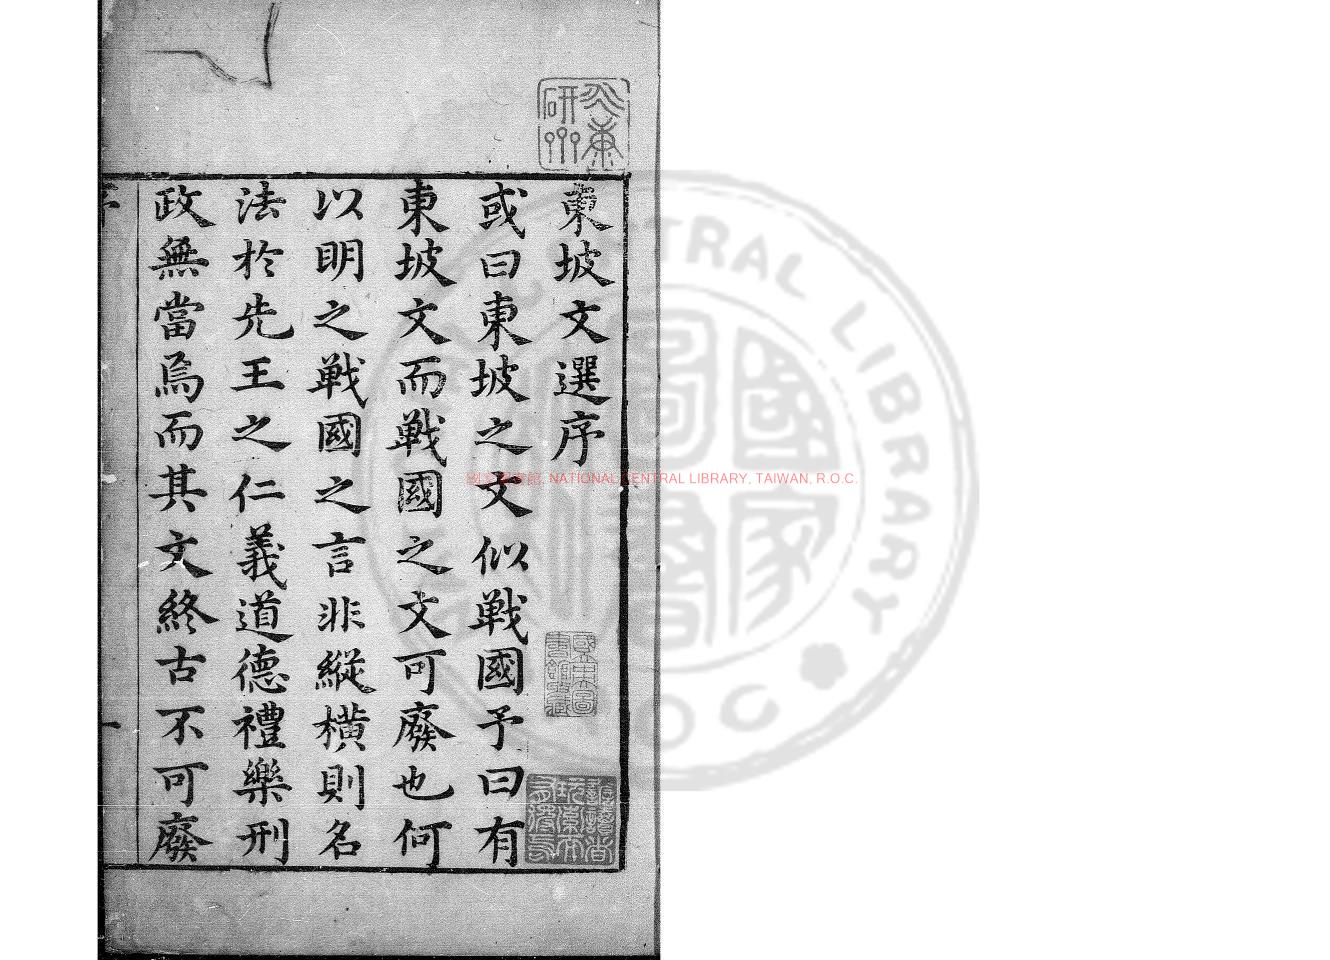 東坡文選序
或曰東坡之文似戰國予曰有
東坡文而戰國之文可廢也何
以明之戰國之言非縱橫則名
法於先王之仁義道德禮樂刑
政無當焉而其文終古不可廢
序
一
NATIONAL CENTRAL LIBRARY, TAIWAN, R.O.C.